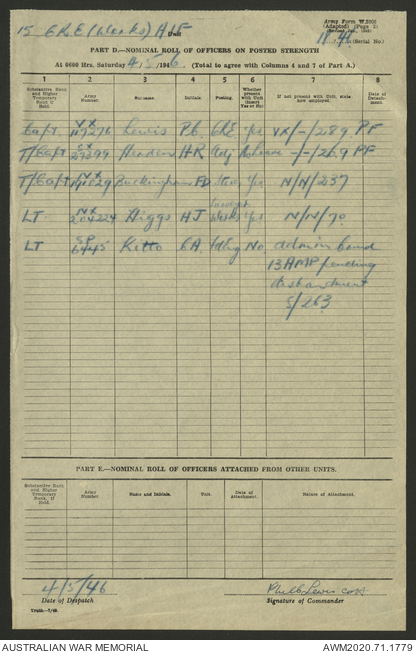 15 CRE (Works) AIF Unit
Army Form W.3008
(Adapted) (Page 2)
(Serial No.)
PART D.—NOMINAL ROLL OF OFFICERS ON POSTED STRENGTH
At 0600 Hrs. Saturday 4/5/1946. (Total to agree with Columns 4 and 7 of Part A.)
1 2 3 4 5 6 7 8
Substantive Rank and Higher Temporary Rank if Held. Army Number. Surname. Initials. Posting. Whether present with Unit (Insert Yes or No) If not present with Unit, state how employed. Date of Detachment.
Capt VX117276 Lewis P.G. CRE Yes VX/-/289 PF
T/Capt Headon HR Adj Leave -/-/269 PF
T/Capt Buckingham FD Yes N/N/237
LT NX204224 Higgs HJ Works Yes N/N/70
LT Kitto CA No admin
13 AMP pending
disbandment
S/263
PART E.—NOMINAL ROLL OF OFFICERS ATTACHED FROM OTHER UNITS.
Substantive Rank and Higher Temporary Rank, if Held. Army Number. Name and Initials. Unit. Date of Attachment. Nature of Attachment.
4/5/46
Date of Despatch Signature of Commander
AUSTRALIAN WAR MEMORIAL AWM2020.71.1779